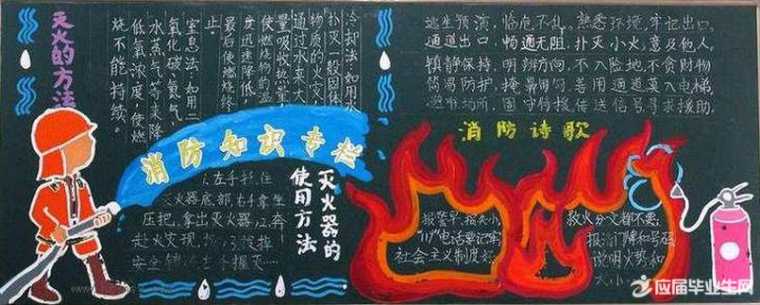 灭火的方法
冷却法:如用水
扑灭一般固体
物质的火灾,
通过水来大
量吸收热量,
使燃烧物的温
度迅速降低,
最后使燃烧终
止。
窒息法:如用二
氧化碳、氮气、
水蒸气等来降
低氧浓度,使燃
烧不能持续。
逃生预演,临危不乱。熟悉环境,牢记出口。
通道出口,畅通无阻。扑灭小火,惠及他人。
镇静保持,明辨方向。不入险地,不贪财物
简易防护,掩鼻匍匐。善用通道,莫入电梯
避难场所,固守待援。传送信号,寻求援助。
消防知识专栏
消防诗歌
灭火器的
使用方法
左手托住
灭火器底部,右手拿住
压把,拿出灭火器,奔
赴火灾现
安全销
报警早,损失小,
"119"电话要记牢
社会主义制度好,
救火分文都不要,
报清门牌和号码
说明火势和
大小
应届毕业生网